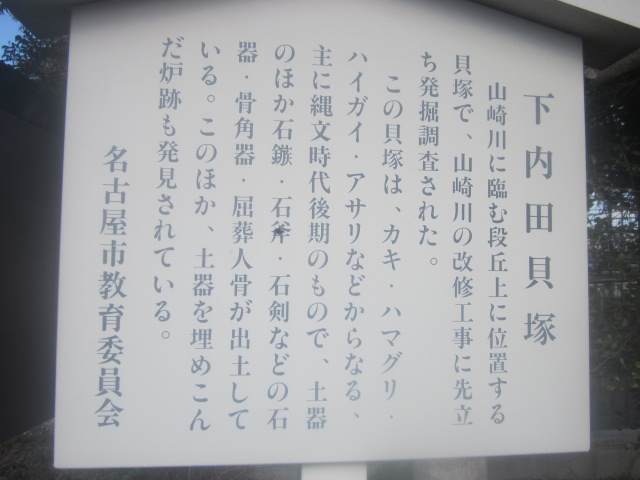 下内田貝塚
山崎川に臨む段丘上に位置する
貝塚で、山崎川の改修工事に先立
ち発掘調査された。
この貝塚は、カキ・ハマグリ・
ハイガイ・アサリなどからなる、
主に縄文時代後期のもので、土器
のほか石鏃・石斧・石剣などの石
器・骨角器・屈葬人骨が出土して
いる。このほか、土器を埋めこん
だ炉跡も発見されている。
名古屋市教育委員会